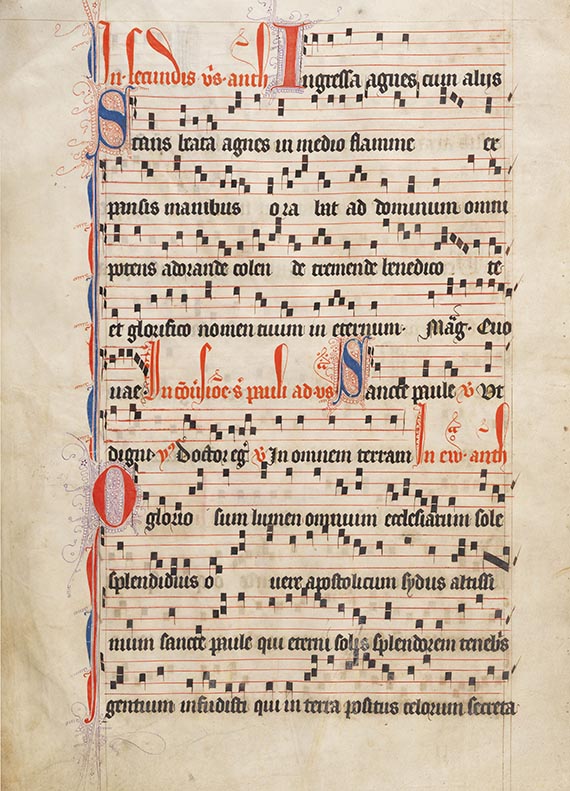 In secundis vs. anth Ingressa agnes cum aliis
Stans beata agnes in medio flamme ex
pansis manibus ora bat ad dominum omni
potens adorande colen de tremende benedico te
et glorifico nomen tuum in eternum. Mag. Quo
niae In cōūsiōe s. pauli ad vs Sancte paule V Vt
digni. Doctor eg. V In omnem terram In ew. anth
O glorio sum lumen omnium ecclesiarum sole
splendidius o vere apostolicum sydus altissi
mum sancte paule qui eterni solis splendorem tenebs
gentium infudisti qui in terra positus celorum secreta